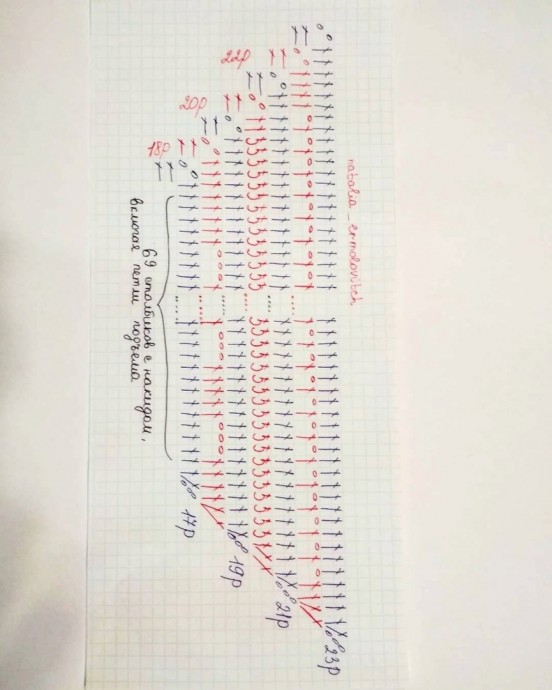 22р
20р
18р
natalia_ermolovitch
69 столбиков с накидом,
включая петли подъёма
17р
19р
21р
23р